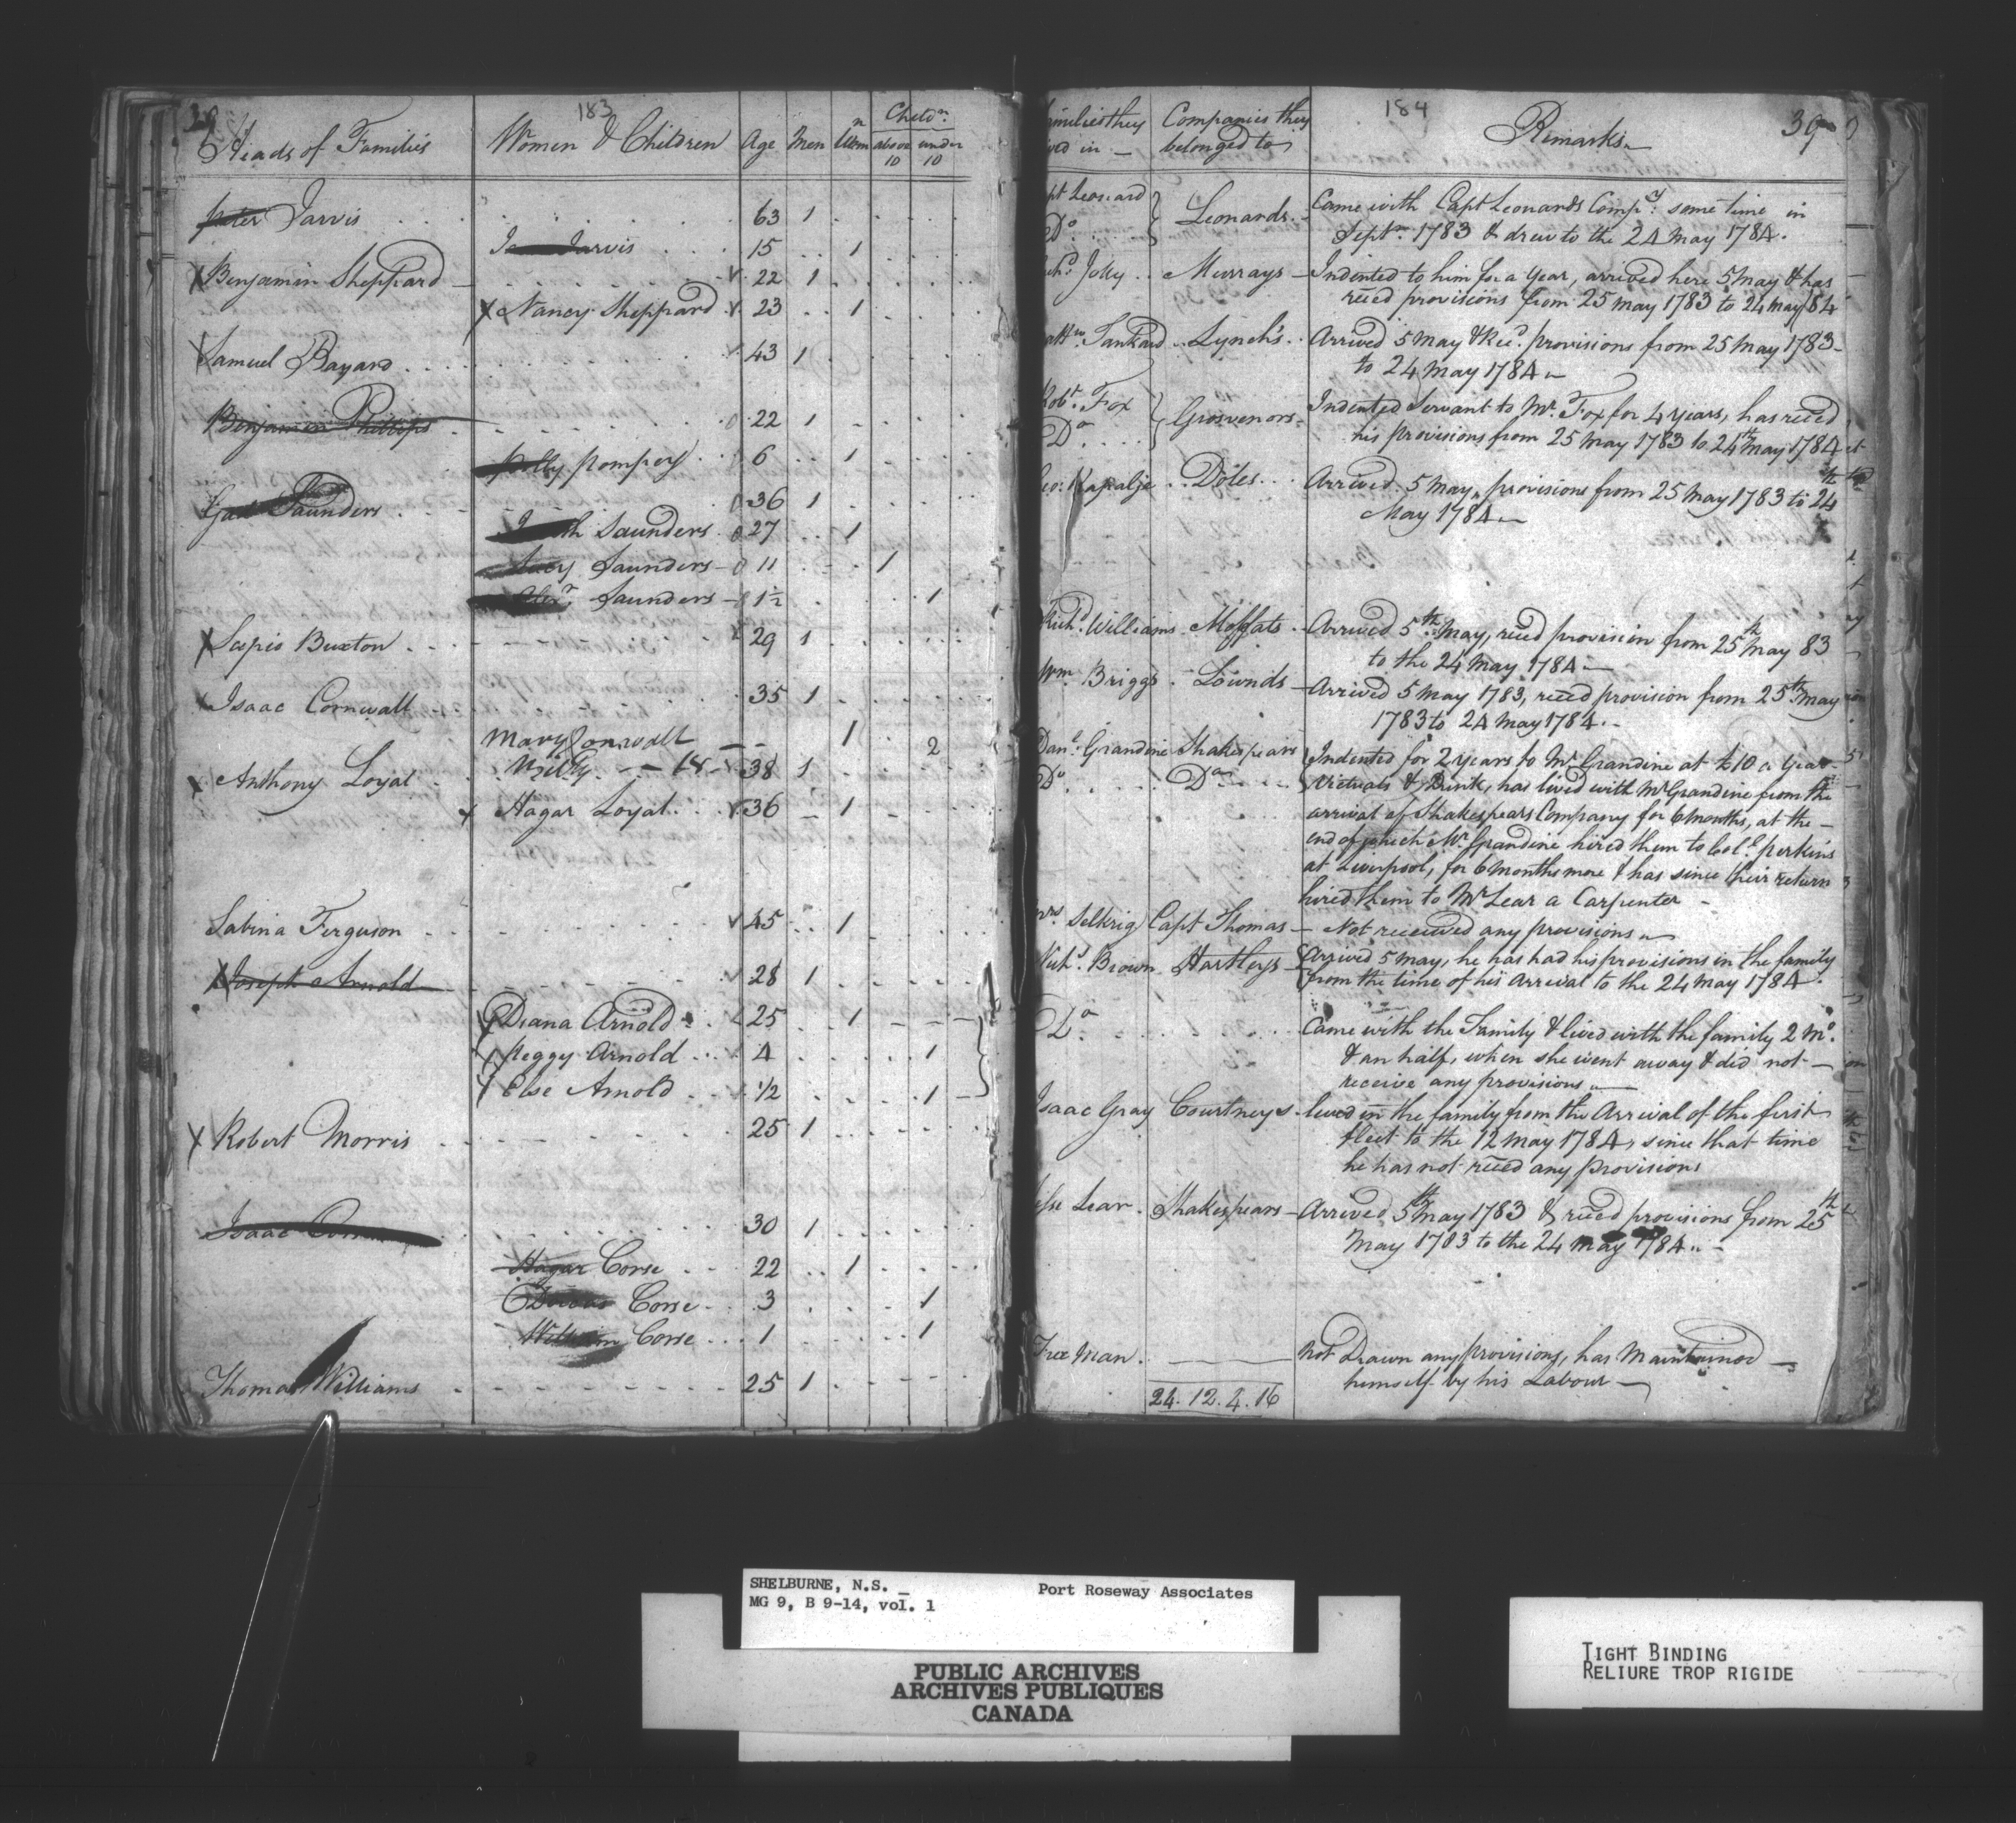 183
Heads of Families
Women & Children
Age
Men
Wom n
Child n.
above 10
under 10
Peter Jarvis 63 1
Jarvis 15 1
X Benjamin Sheppard 22 1
X Nancy Sheppard 23 1
Samuel Bayard 43 1
Benjamin Phillips 22 1
Polly Pompey 6 1
Gad Saunders 36 1
Saunders 27 1
Lucy Saunders 11 1
Alexr. Saunders 1½ 1
X Scipio Buxton 29 1
X Isaac Cornwall 35 1
Mary Cornwall 1 2
X Anthony Loyal 38 1
X Hagar Loyal 36 1
Sabina Ferguson 45 1
X Joseph Arnold 28 1
X Diana Arnold 25 1
X Peggy Arnold 4 1
X Else Arnold 1/2 1
X Robert Morris 25 1
Isaac 30 1
Hagar Corse 22 1
Corse 3 1
William Corse 1 1
Thomas Williams 25 1
184
39
milies they
ed in
Companies they
belonged to
Remarks
pt Leonard
Do
Leonards
Came with Capt Leonards Compy. some time in
Septr. 1783 & drew to the 24 May 1784.
Jolly
Murrays
Indented to him for a Year, arrived here 5 May & has
reced provisions from 25 May 1783 to 24 May 84
Tankard
Lynch's
Arrived 5 May & Recd. provisions from 25 May 1783
to 24 May 1784
Robt. Fox
Do
Grosvenors
Indented Servant to Mr. Fox for 4 Years, has reced
his provisions from 25 May 1783 to 24th May 1784
eo: Rapalje
Doles
Arrived 5 May, provisions from 25 May 1783 to 24th
May 1784
Richd. Williams
Moffats
Arrived 5th May, reced provision from 25th May 83
to the 24 May 1784
Wm. Briggs
Lownds
Arrived 5 May 1783, reced provision from 25th May
1783 to 24 May 1784
Danl. Grandine
Shakespears
Do
Do
Indented for 2 years to Mr. Grandine at £10 a Year
Victuals & Drink, has lived with Mr Grandine from the
arrival of Shakespears Company for 6 months, at the
end of which Mr. Grandine hired them to Coll. Perkins
at Liverpool, for 6 months more & has since their return
hired them to Mr Lear a Carpenter
Selkrig
Capt Thomas
Not received any provisions
Brown
Hartleys
Arrived 5 May, he has had his provisions in the family
from the time of his Arrival to the 24 May 1784
Do
Came with the Family & lived with the family 2 Mo.
& an half, when she went away & did not
receive any provisions
Isaac Gray
Courtneys
lived in the family from the Arrival of the first
fleet to the 12 May 1784, since that time
he has not reced any provisions
Lear
Shakespears
Arrived 5th May 1783 & reced provisions from 25th
May 1783 to the 24 May 1784
Free Man
Not Drawn any provisions, has Maintained
himself by his Labour
24. 12. 4. 16
SHELBURNE, N.S. _
Port Roseway Associates
MG 9, B 9-14, vol. 1
PUBLIC ARCHIVES
ARCHIVES PUBLIQUES
CANADA
TIGHT BINDING
RELIURE TROP RIGIDE